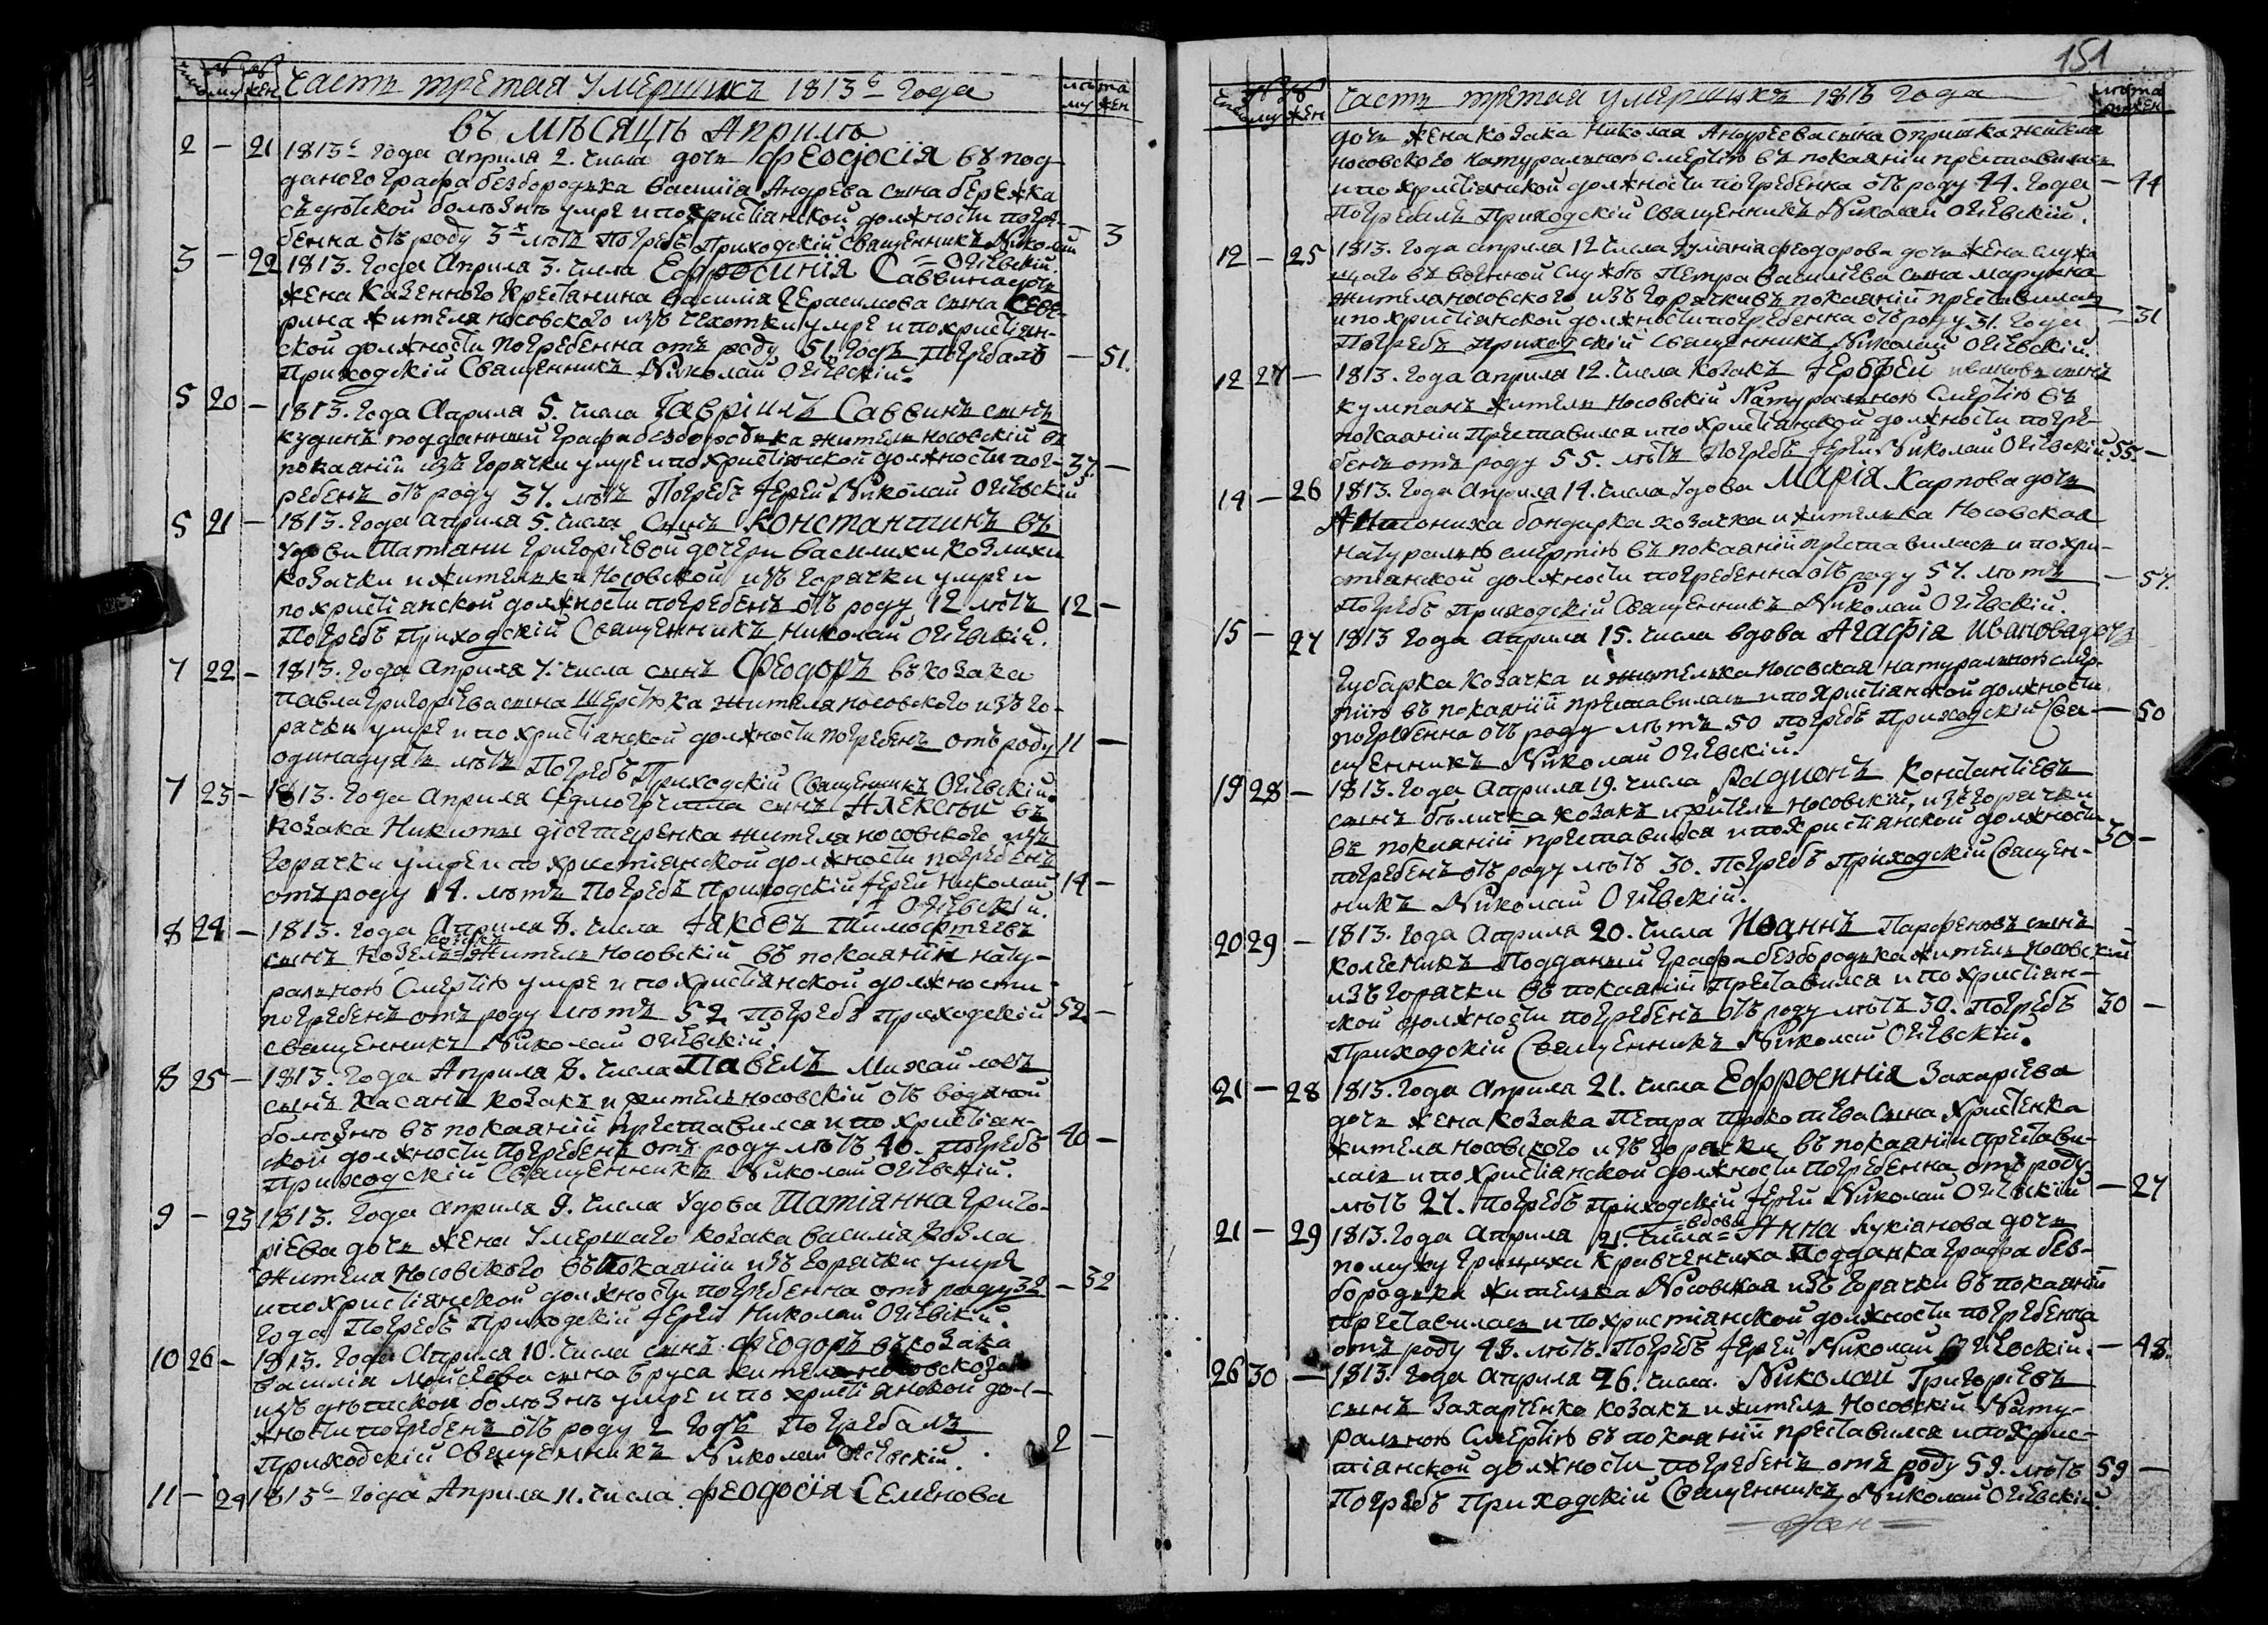 Часть третая Умершихъ 1813г Года
въ мѣсяцѣ Априлѣ
2 – 21 1813г года априля 2. числа дочь Феодосія въ под-
даного Графа безбородька василія Андрѣева сына бережка
дѣтской болѣзнѣ умре и по христіянской должности погре-
бенна отъ роду 3х лѣтъ погребъ Приходскій священникъ Николай – 3
Огіевскій.
3 – 22 1813. Года Априля 3. числа Евфросинія Саввина дочь
жена казенного крестянина василия Герасимова сына
рина жителя носовского изъ чехотки умре и по христіян-
ской должности погребенна отъ роду 51. годъ погребалъ – 51.
Приходскій Священникъ Николай Огіевскій.
5 20 – 1813. Года Априля 5. числа Гавріилъ Саввинъ сынъ
кудинъ подданный графа безбородька житель носовскій въ
покаяніи изъ горячки умре и по христіянской должности пог- 37. –
ребенъ отъ роду 37. лѣтъ Погребъ Іерей Николай Огіевскій
5 21 – 1813. Года априля 5. числа Сынъ Константинъ въ
удови Татіани григоріевой дочери василихи козлихи
козачки и жительки Носовской изъ горячки умре и
по христіянской должности погребенъ отъ роду 12 лѣтъ 12 –
Погребъ Приходскій Священникъ Николай Огіевскій.
7 22 – 1813. Года Априля 7. числа сынъ Феодоръ въ козака
павла григоріева сына шерстька жителя носовского изъ го-
рачки умре и по христіянской должности погребенъ отъ роду 11 –
одинадцять лѣтъ Погребъ Приходскій Священникъ Огіевскій.
7 23 – 1813. Года Априля сынъ Алексѣй въ
козака Никиты жителя носовского изъ
горачки умре и по христіянской должности погребенъ
отъ роду 14. лѣтъ Погребъ приходскій Іерей Николай 14 –
Огіевскій.
8 24 – 1813. Года Априля 8. числа Іаковъ Тимофѣевъ
козакъ
сынъ Козелъ житель носовскій въ покаяніи нату-
ральною Смертію умре и по христіянской должности
погребенъ отъ роду лѣтъ 52 погребъ приходскій 52. –
священникъ Николай Огіевскій.
8 25 – 1813. Года Априля 8. числа Павелъ Михайловъ
сынъ касанъ козакъ и житель носовскій отъ водяной
болѣзню въ покаяніи преставился и по христіян-
ской должности погребенъ отъ роду лѣтъ 40. погребъ 40 –
приходскій Священникъ Николай Огіевскій.
9 – 23 1813. Года априля 9. числа Удова Татіянна Григо-
ріева дочь жена Умершаго козака василія козла
жителя Носовского въ покаяніи изъ горячки умре
и по христіянской должности погребенна отъ роду 32 – 32
года Погребъ Приходскій Іерей Николай Огіевскій.
10 26 – 1813. Года Априля 10. числа сынъ Феодоръ въ козака
василія Моисеева сына бруса жителя носовского
изъ дѣтской болѣзнѣ умре и по христіянской дол-
жности погребенъ отъ роду 2 годъ Погребалъ 2 –
приходскій Священникъ Николай Огіевскій.
11 – 24 1813г Года Априля 11. числа Феодосія Семенова
151
Часть третая умершихъ 1813 Года
дочь жена козака Николая Андрѣева сына опришка жителя
носовского натуральною смертію въ покаяніи преставилась
и по христіянской должности погребенна отъ роду 44. года – 44
Погребалъ Приходскій Священникъ Николай Огіевскій.
12 – 25 1813. Года априля 12 числа Уліянія Феодорова дочь жена служа
щаго въ военной службѣ Петра Василіева сына
жителя носовского изъ горячки въ покаяніи преставилась
и по христіянской должности погребенна отъ роду 31. года – 31
Погребъ приходскій Священникъ Николай Огіевскій.
12 27 – 1813. Года априля 12. числа козакъ Іерофѣй ивановъ сынъ
кулпанъ житель Носовскій Натуральною Смертію въ
покаяніи Преставился и по христіянской должности погре-
бенъ отъ роду 55. лѣтъ Погребъ Іерей Николай Огіевскій. 55. –
14 – 26 1813. Года Априля 14. числа Удова Марія Карпова дочь
бондарка козачка и жителька Носовская
натуральн. смертію въ покаяніи преставилась и по хри-
стіянской должности погребенна отъ роду 57. лѣтъ – 57.
Погребъ приходскій Священникъ Николай Огіевскій.
15 – 27 1813 Года априля 15. числа вдова Агафія Иванова дочь
Губарка Козачка и жителька Носовская натуральною смер-
тію въ покаяніи преставилась и по христіянской должности
погребенна отъ роду лѣтъ 50 погребъ Приходскій Свя – 50
щенникъ Николай Огіевскій.
19 28 – 1813. Года Априля 19. числа Радионъ Константіевъ
сынъ бѣличка козакъ и житель Носовскій, изъ горячки
въ покаяніи преставился и по христіянской должности 30 –
погребенъ отъ роду лѣтъ 30. погребъ приходскій Священ-
никъ Николай Огіевскій.
20 29 – 1813. Года Априля 20. числа Иоаннъ Парфеновъ сынъ
колесникъ Подданый Графа безбородька житель Носовский
изъ горячки въ покаяніи Преставился и по христіян-
ской должности погребенъ отъ роду лѣтъ 30. погребъ 30 –
Приходскій Священникъ Николай Огіевскій.
21 – 28 1813. Года априля 21. числа Ефросинія Захаріева
дочь жена козака Петра прокопіева сына Христенка
жителя носовского изъ горачки въ покаяніи престави-
лась и по христіянской должности погребенна отъ роду
лѣтъ 27. погребъ приходскій Іерей Николай Огіевскій – 27
21 – 29 1813. Года Априля 21. числа = вдова = Анна Лукіанова дочь
по мужу грициха Кравченчиха Подданка графа без-
бородька жителька Носовская изъ горячки въ покаяніи
преставилась и по христіянской должности погребенна
отъ роду 48. лѣтъ. Погребъ Іерей Николай Огіевскій. – 48.
26 30 – 1813. Года априля 26. числа. Николай Григоріевъ
сынъ Захарченко козакъ и житель Носовскій Нату-
ральною Смертію въ покаяніи преставился и по хрис-
тіянской должности погребенъ отъ роду 59. лѣтъ 59 –
Погребъ Приходскій Священникъ Николай Огіевскій